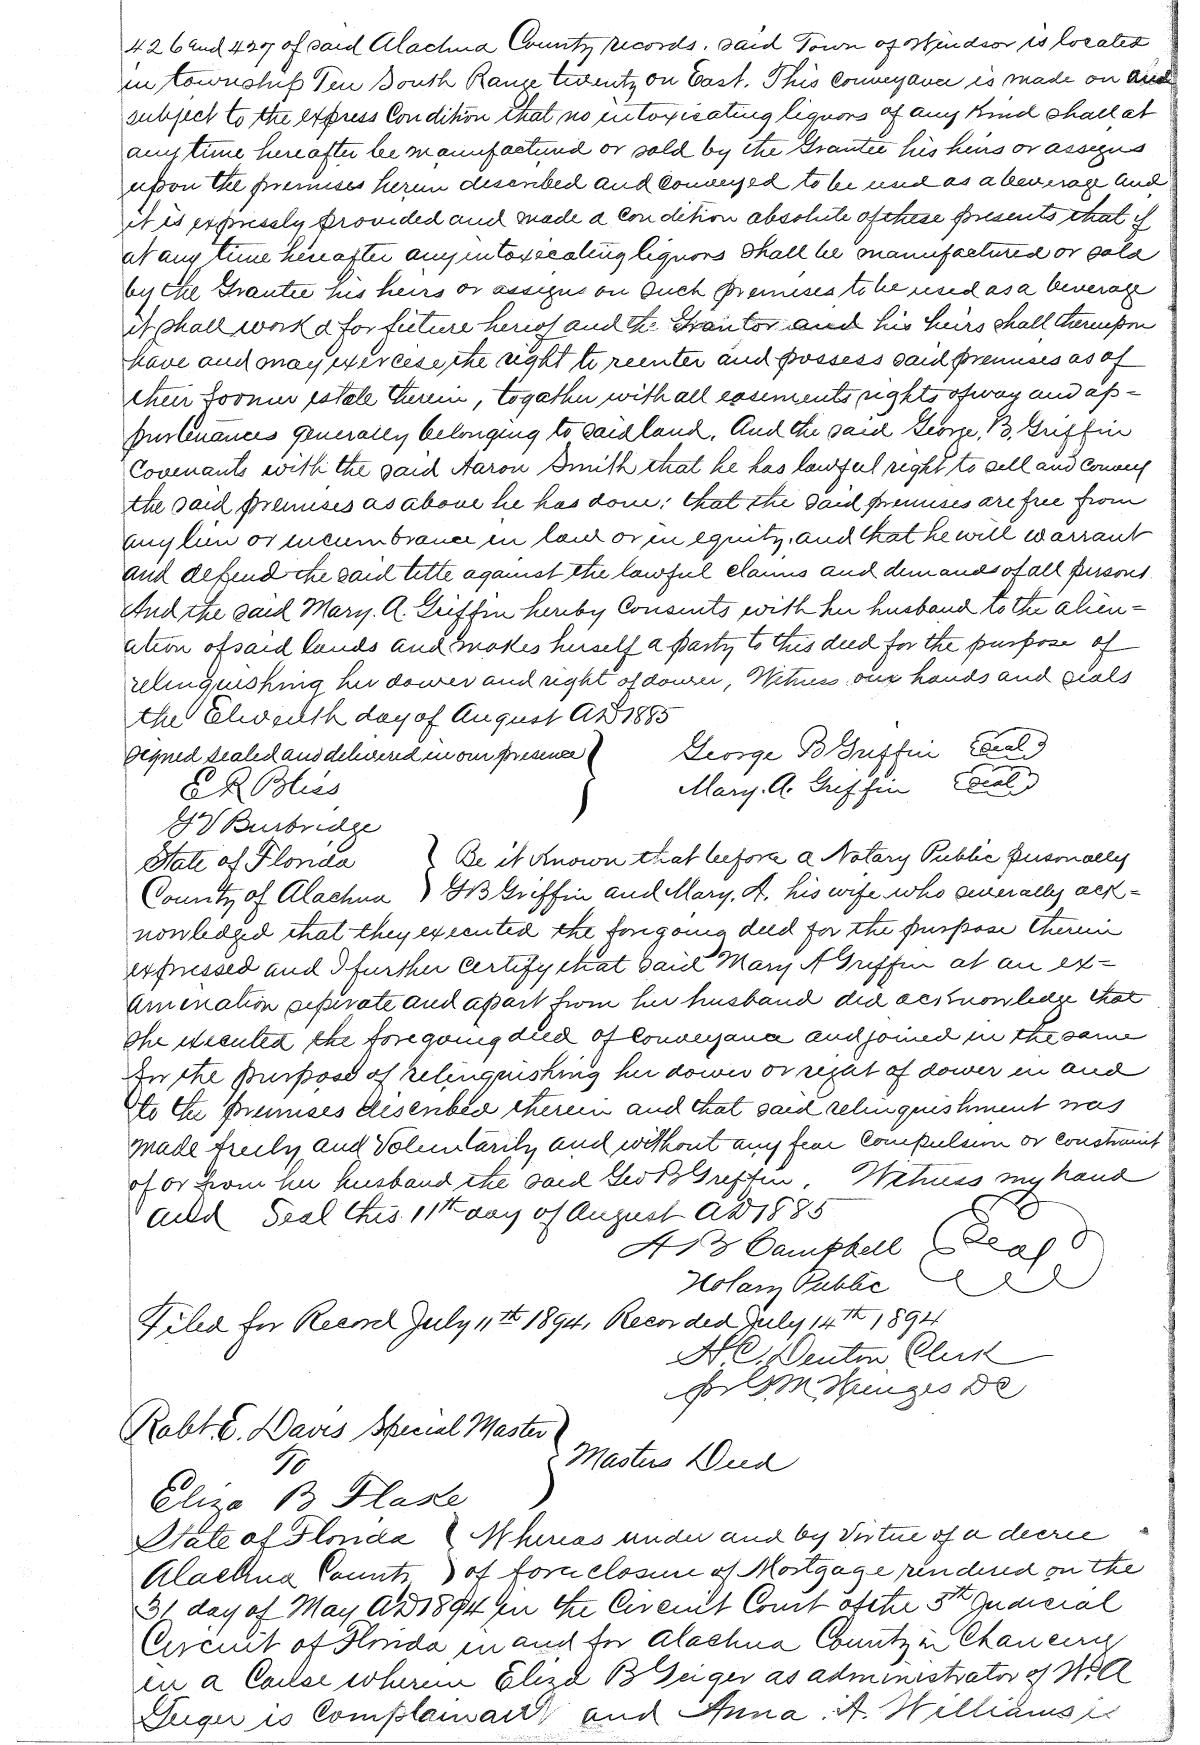 426 and 427 of said Alachua County records. said Town of Windsor is located
in township Ten South Range twenty on East. This conveyance is made on and
subject to the express Condition that no intoxicating liquors of any Kind shall at
any time hereafter be manufactured or sold by the Grantee his heirs or assigns
upon the premises herein described and conveyed to be used as a beverage and
it is expressly provided and made a condition absolute of these presents that if
at any time hereafter any intoxicating liquors shall be manufactured or sold
by the Grantee his heirs or assigns on such premises to be used as a beverage
it shall work a forfieture hereof and the Grantor and his heirs shall thereupon
have and may exercise the right to reenter and possess said premises as of
their former estate therein, togather with all easements rights of way and ap=
purtenances generally belonging to said land. And the said George. B. Griffin
Covenants with the said Aaron Smith that he has lawful right to sell and convey
the said premises as above he has done; that the said premises are free from
any lien or incumbrance in law or in equity. and that he will warrant
and defend the said title against the lawful claims and demands of all persons.
And the said Mary. A. Griffin hereby Consents with her husband to the alien=
ation of said lands and makes herself a party to this deed for the purpose of
relinquishing her dower and right of dower, Witness our hands and seals
the Elventh day of August AD 1885
signed sealed and delivered in our presence } George B Griffin (seal)
E R Bliss Mary. A. Griffin (seal)
G V Burbridge
State of Florida } Be it Known that before a Notary Public personally
County of Alachua } G B Griffin and Mary. A. his wife who severally ack=
nowledged that they executed the foregoing deed for the purpose therein
expressed and I further certify that said Mary A Griffin at an ex=
amination seperate and apart from her husband did acknowledge that
she executed the foregoing deed of conveyance and joined in the same
for the purpose of relinquishing her dower or right of dower in and
to the premises discribed therein and that said relinquishment was
made freely and Voluntarily and without any fear compulsion or constraint
of or from her husband the said Geo B Griffin. Witness my hand
and Seal this 11th day of August AD 1885
H B Campbell (Seal)
Notary Public
Filed for Record July 11th 1894, Recorded July 14th 1894
H. C. Denton Clerk
pr G. M. DC
Robt. E. Davis Special Master }
To } Masters Deed
Eliza B Flake
State of Florida } Whereas under and by Virtue of a decree
Alachua County } of foreclosure of Mortgage rendered on the
31 day of May AD 1894 in the Circuit Court of the 5th Judicial
Circuit of Florida in and for Alachua County in Chancery
in a Cause wherein Eliza B Geiger as administrator of W. A
Geiger is Complainant and Anna. A. Williams is